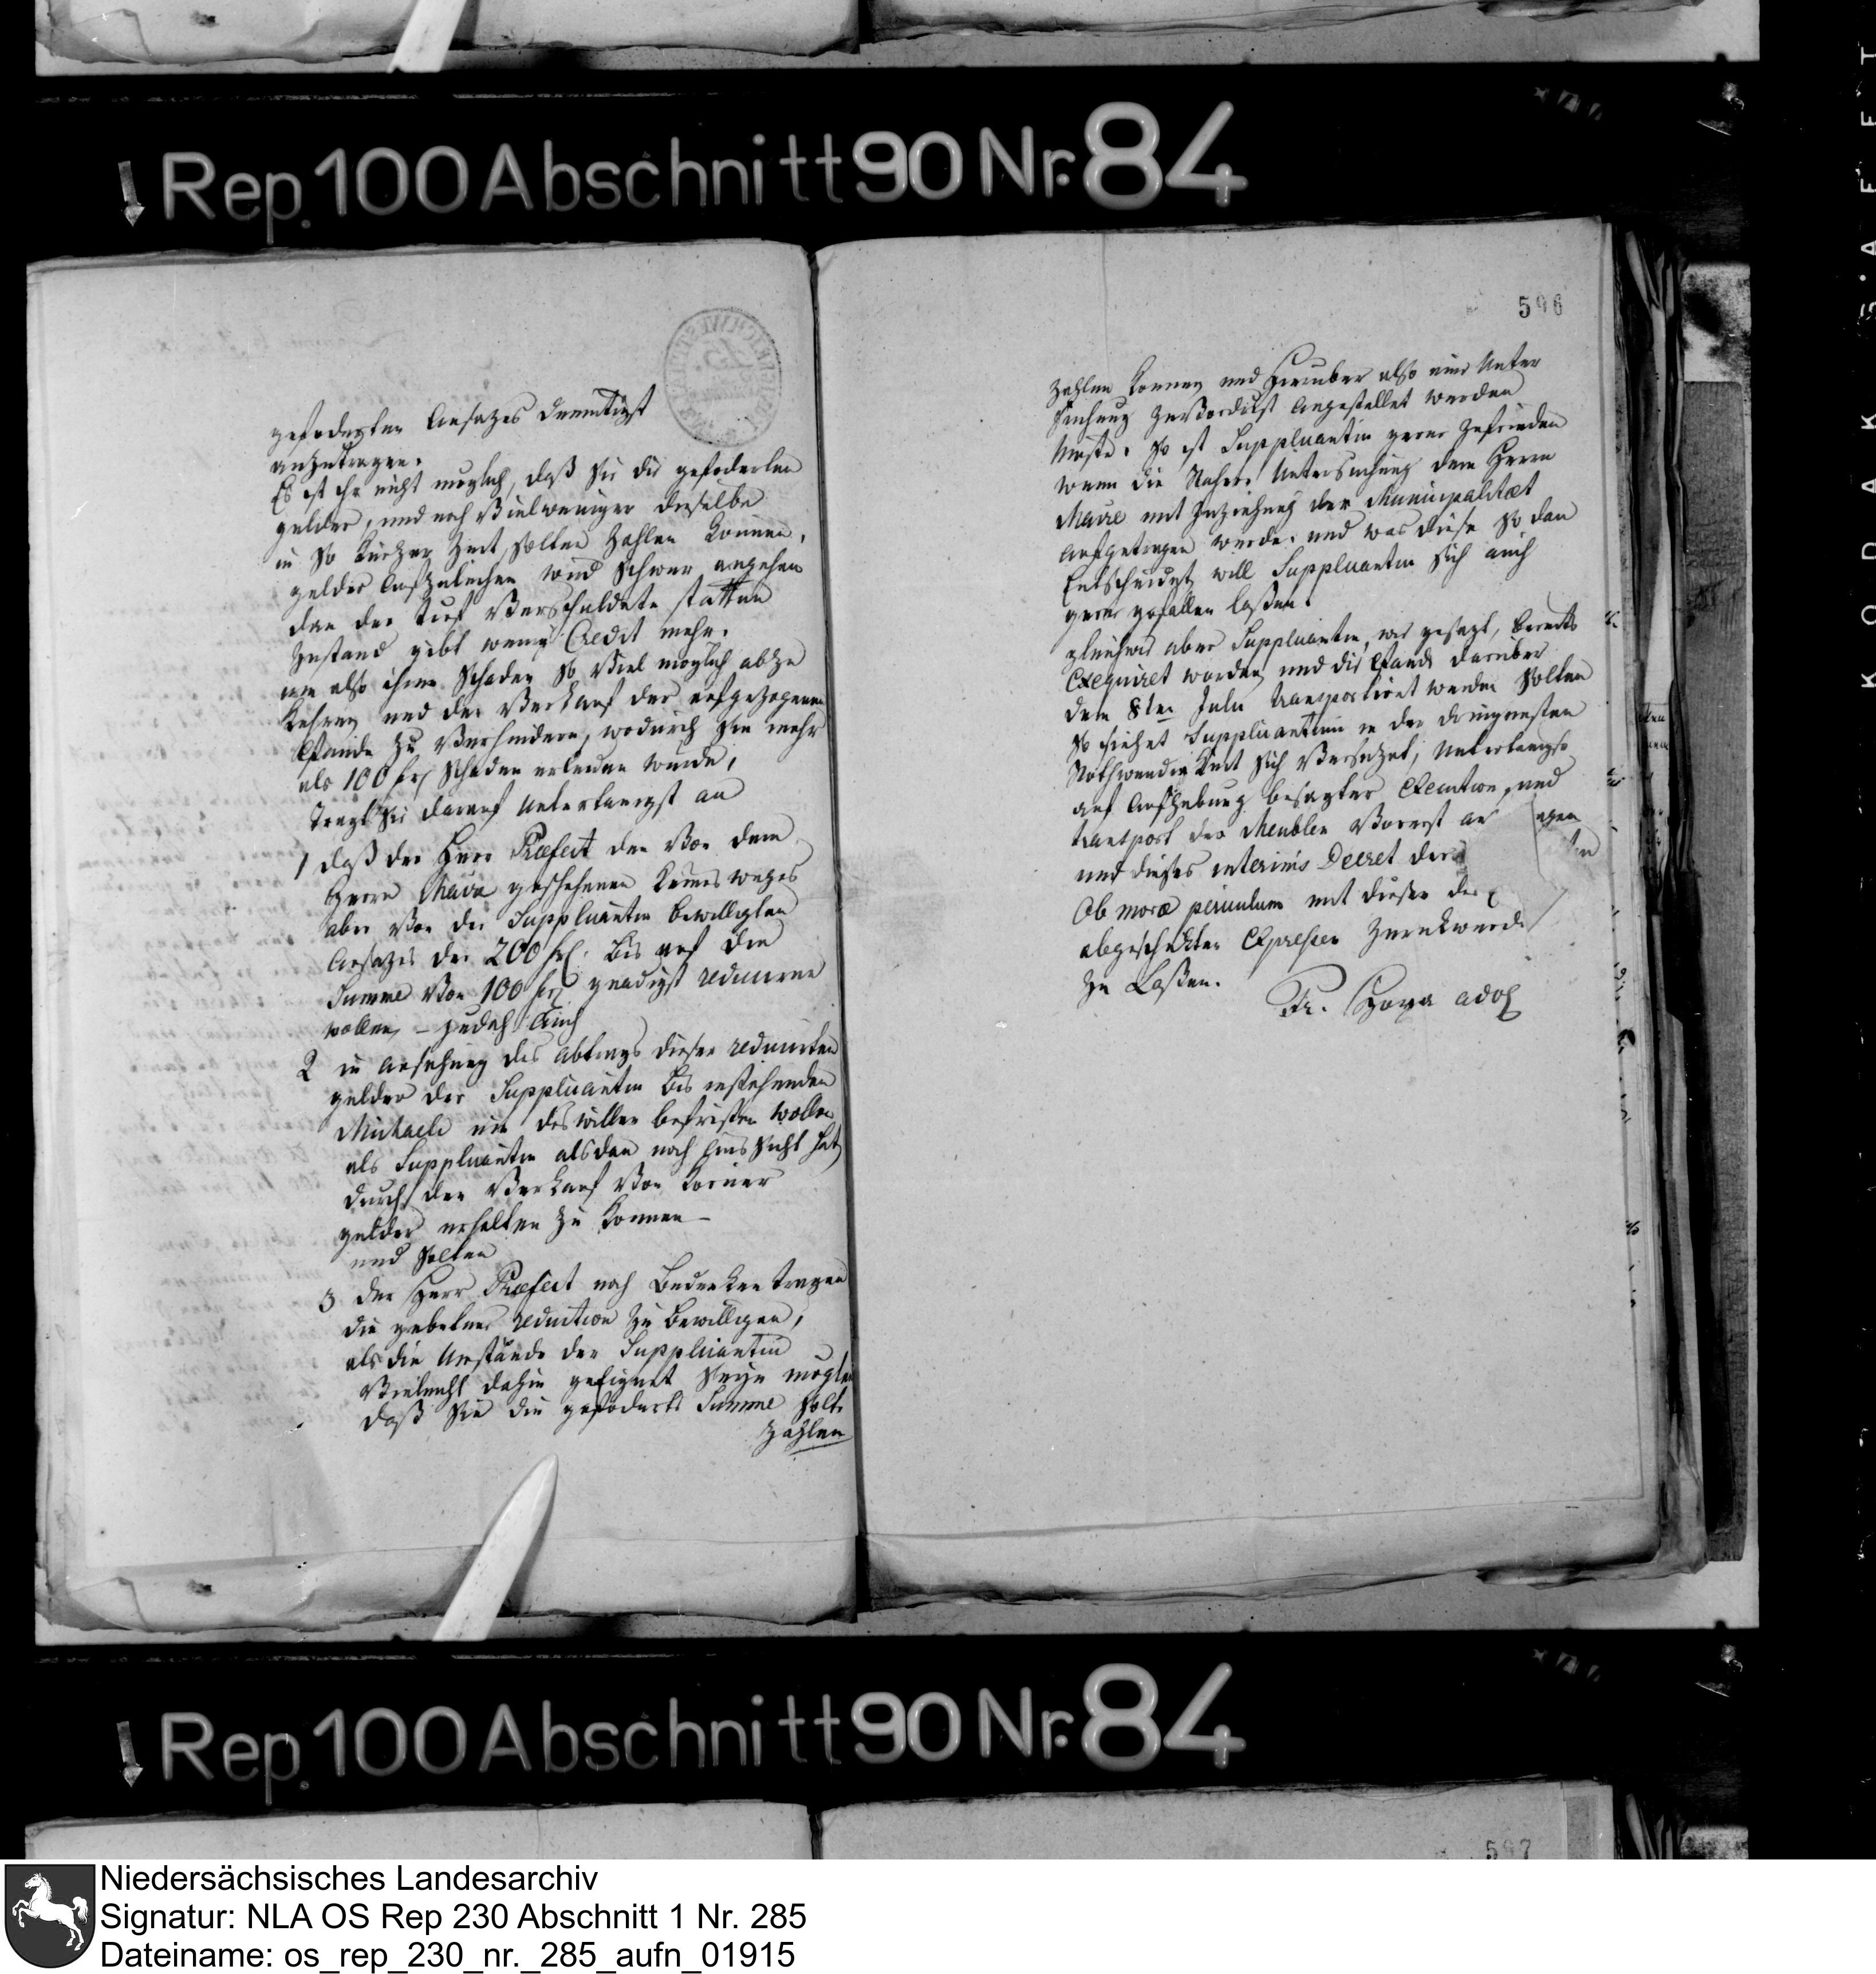 Rep. 100 Abschnitt 90 Nr. 84
geforderten Ansazes demütigst
anzutragen.
Es ist ihr nicht moglich, daß sie die geforderten
gelder, und noch Vielweniger dieselbe
in so kurzer Zeit solten Zahlen konnen,
gelder aufzuleihen wird schwer angehen
dan der tief Verschuldete statten
Zustand gibt wenig Credit mehr.
um also ihren Schaden so Viel moglich abzu
kehren und den Verkauf der aufgezogenen
Pfande zu Verhindern, wodurch sie mehr
als 100 frs Schaden erleiden wurde,
tragt sie darauf Unterthanigst an
1 daß der Herr Præfect den Von dem
Herrn Maire geschehenen keines weges
aber Von der Suppluantin bewilligten
Ansazes der 200 frs. bis auf die
Summe Von 100 frs gnadigst reduciren
wollen, – jedoch Auch
2 in Ansehung des Abtrags dieser reducirten
gelder der Suppluantin bis instehenden
Michaeli um deswillen befristen wollen
als Suppluantin alsdan noch hinsicht hat
durch den Verkauf Von Korner
gelder erhalten zu konnen –
und solten
3 der Herr Præfect noch Bedenken tragen
die gebetene reduction zu bewilligen,
als die Umstände der Suppluantin
Vieleicht dahin geeignet seyn mogten
daß sie die geforderte Summe solte
Zahlen
596
zahlen konnen und hieruber also eine Unter
suchung zuvorderst angestellet werden
muste. so ist Suppluantin gerne zufrieden
wenn die Nahere Untersuchung dem Herrn
Maire mit Zuziehung der Municipalitæt
aufgetragen werde. und was diese so dan
Entscheidet will Suppluantin sich auch
gerne gefallen laßen.
gleichwie aber Suppluantin, wie gesagt, bereits
Exequiret worden und die Pfande daruber
dem 8ten July transportiret werden solten
so siehet Suppluantin in der dringensten
Nothwendigkeit sich Versezet, Unterthanigst
auf Aufhebung besagter Execution, und
transport der Meublen Vorerst an
und dieses interims Decret der
Ob moræ periculum mit diesen der
abgeschickten Expressen Zuruk
zu Laßen.
Rep. 100 Abschnitt 90 Nr. 84
597
KODAK SAFET
Niedersächsisches Landesarchiv
Signatur: NLA OS Rep 230 Abschnitt 1 Nr. 285
Dateiname: os_rep_230_nr._285_aufn_01915